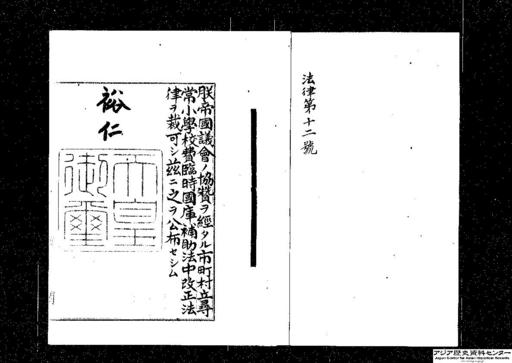 法律第十二號
朕帝國議會ノ協贊ヲ經タル市町村立尋
常小學校費臨時國庫補助法中改正法
律ヲ裁可シ茲ニ之ヲ公布セシム
裕仁
天皇
御璽
アジア歴史資料センター
Japan Center for Asian Historical Records